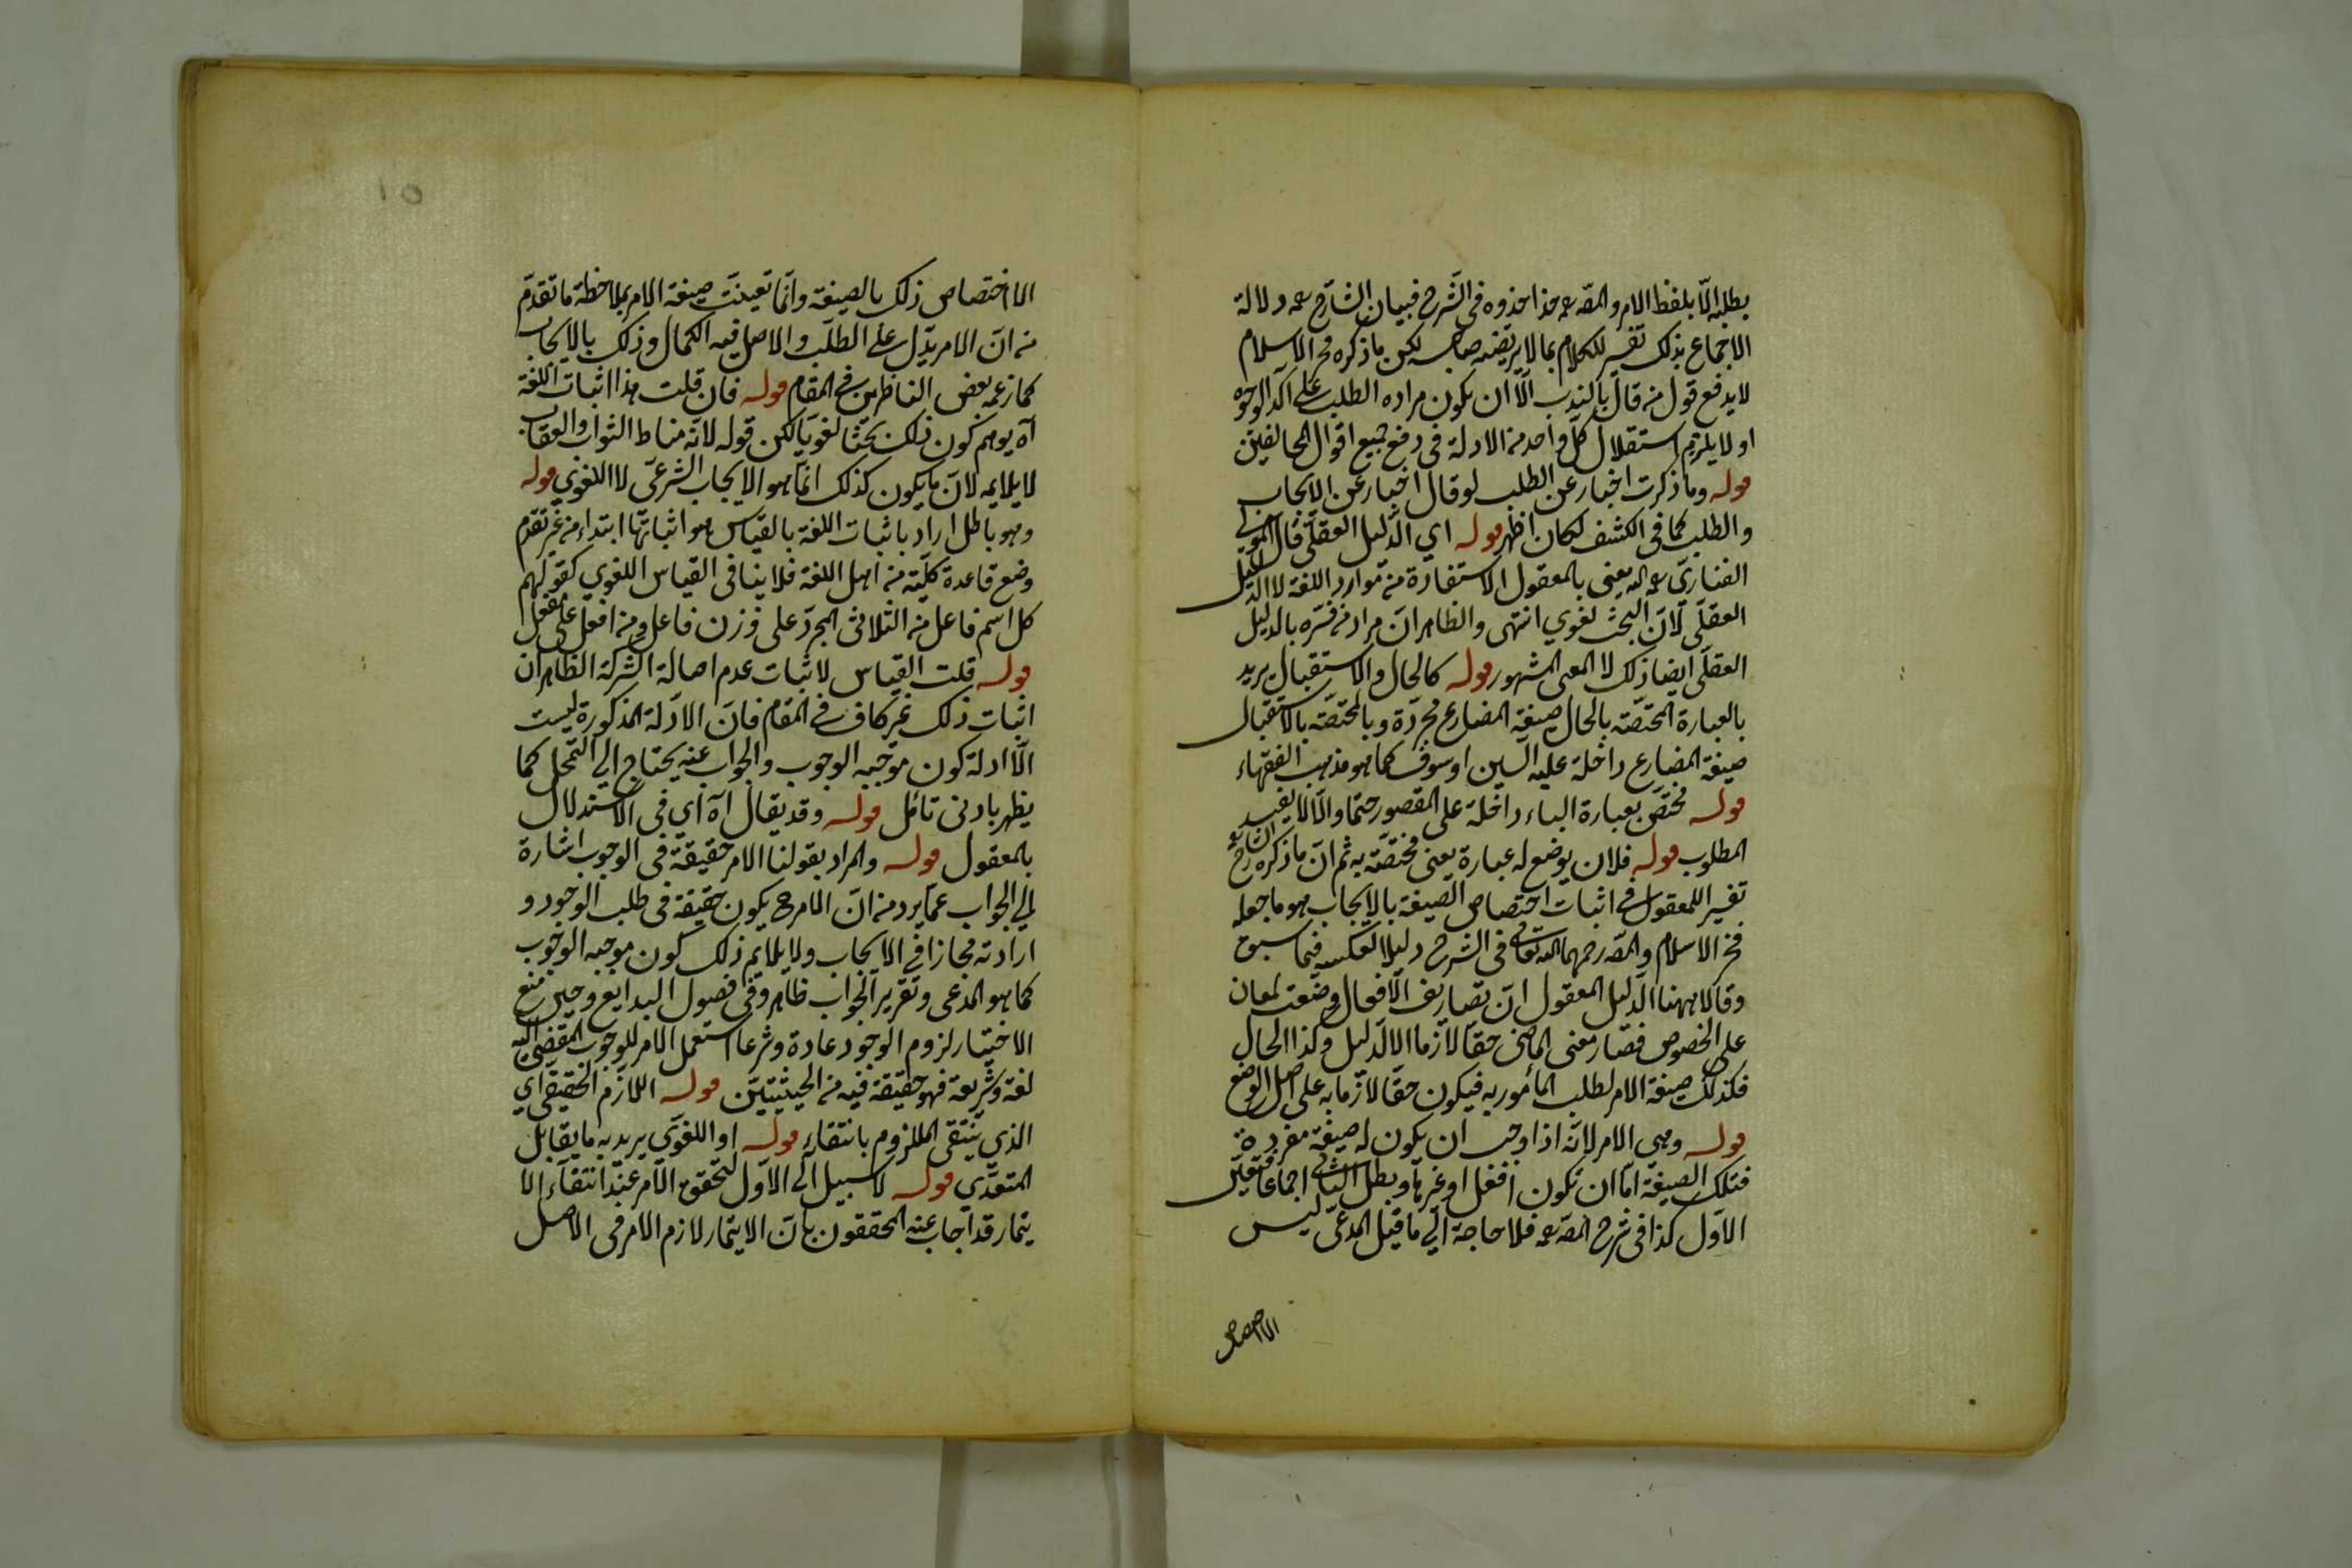 يطلبه الّا بلفظ الامر والمص رحمه حذا حذوه فى الشرح فبيان الشارح رحمه دلالة
الاجماع بذلك تفسير للكلام بما لا يرتضيه صاحبه لكن ما ذكره فخر الاسلام
لا يدفع قول من قال بالندب الّا ان يكون مراده الطلب على آكد الوجوه
او لا يلزم استقلال كلّ واحد من الادلة فى دفع جميع اقوال المخالفين
قوله وما ذكرت اخبار عن الطلب لو قال اخبار عن الايجاب
والطلب كما فى الكشف لكان اظهر قوله اي الدليل العقلى قال المولى
الفناري رحمه الله يعنى بالمعقول الاستفادة من موارد اللغة لا الدليل
العقلى لانّ البحث لغوي انتهى والظاهر انّ مراد من فسّره بالدليل
العقلى ايضا ذلك لا المعنى المشهور قوله كالحال والاستقبال يريد
بالعبارة المختصّة بالحال صيغة المضارع مجرّدة وبالمختصّة بالاستقبال
صيغة المضارع داخلة عليه السين او سوف كما هو مذهب الفقهاء
قوله مختصّ بعبارة الباء داخلة على المقصور حتما والّا لا يفيد
المطلوب قوله فلان يوضع له عبارة يعنى مختصّة به ثم انّ ما ذكره الشارح رحمه
تفسيرا للمعقول فى اثبات اختصاص الصيغة بالايجاب هو ما جعله
فخر الاسلام والمص رحمهما الله تعالى فى الشرح دليلا لعكسه فيما سبق
وقالا ههنا الدليل المعقول انّ تصاريف الافعال وضعت لمعان
على الخصوص فصار معنى الماضى حقا لازما الا الدليل وكذا الحال
فكذلك صيغة الامر لطلب المأمور به فيكون حقا لازما به على اصل الوضع
قوله وهى الامر لانّه اذا وجب ان يكون له صيغة مفردة
فتلك الصيغة امّا ان تكون افعل او غيرها وبطل الثانى اجماعا فتعيّن
الاوّل كذا فى شرح المص رحمه فلا حاجة الى ما قيل المدعى ليس
الا اختصاص
١٥
الا اختصاص ذلك بالصيغة وانّما تعينت صيغة الامر بملاحظة ما تقدّم
من انّ الامر يدّل على الطلب والاصل فيه الكمال وذلك بالايجاب
كما زعمه بعض الناظرين فى المقام قوله فان قلت هذا اثبات اللغة
آه يوهم كون ذلك بحثا لغويّا لكن قوله لانّه مناط الثواب والعقاب
لا يلايمه لانّ ما يكون كذلك انّما هو الايجاب الشرعى لا اللغوي قوله
وهو باطل اراد باثبات اللغة بالقياس هو اثباتها ابتداء من غير تقدم
وضع قاعدة كليّة من اهل اللغة فلا ينافى القياس اللغوي كقولهم
كل اسم فاعل من الثلاثى المجرّد على وزن فاعل ومن افعل على مفعل
قوله قلت القياس لاثبات عدم اصالة الشركة الظاهر ان
اثبات ذلك غير كاف فى المقام فانّ الادلّة المذكورة ليست
الّا ادلة كون موجبه الوجوب والجواب عنه يحتاج الى التمحل كما
يظهر بادنى تأمل قوله وقد يقال آه اي فى الاستدلال
بالمعقول قوله والمراد بقولنا الامر حقيقة فى الوجوب اشارة
الى الجواب عمّا يرد من انّ الامر ح يكون حقيقة فى طلب الوجود و
ارادته مجازا فى الايجاب ولا يلايم ذلك كون موجبه الوجوب
كما هو المدعى وتقرير الجواب ظاهر وفى فصول البدايع وحين منع
الاختيار لزوم الوجود عادة وشرعا استعمل الامر للوجوب المفضى اليه
لغة وشريعة فهو حقيقة فيه من الحيثيتين قوله اللازم الحقيقى اي
الذي ينتفى الملزوم بانتفاء قوله او اللغوي يريد به ما يقابل
المتعدّي قوله لا سبيل الى الاوّل لتحقق الامر عند انتفاء الا
يتمار قد اجاب عنه المحققون بانّ الايتمار لازم الامر فى الاصل